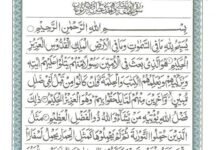 بِسْمِ اللهِ الرَّحْمٰنِ الرَّحِيْمِ
يُسَبِّحُ لِلّٰهِ مَا فِي السَّمٰوٰتِ وَمَا فِي الْاَرْضِ الْمَلِكِ الْقُدُّوْسِ الْعَزِيْزِ
الْحَكِيْمِ هُوَ الَّذِيْ بَعَثَ فِي الْاُمِّيّٖنَ رَسُوْلًا مِّنْهُمْ يَتْلُوْا عَلَيْهِمْ اٰيٰتِهٖ
وَيُزَكِّيْهِمْ وَيُعَلِّمُهُمُ الْكِتٰبَ وَالْحِكْمَةَ وَاِنْ كَانُوْا مِنْ قَبْلُ لَفِيْ ضَلٰلٍ
مُّبِيْنٍ وَّاٰخَرِيْنَ مِنْهُمْ لَمَّا يَلْحَقُوْا بِهِمْ وَهُوَ الْعَزِيْزُ الْحَكِيْمُ ذٰلِكَ
فَضْلُ اللهِ يُؤْتِيْهِ مَنْ يَّشَآءُ وَاللهُ ذُو الْفَضْلِ الْعَظِيْمِ مَثَلُ
الَّذِيْنَ حُمِّلُوا التَّوْرٰىةَ ثُمَّ لَمْ يَحْمِلُوْهَا كَمَثَلِ الْحِمَارِ يَحْمِلُ اَسْفَارًا